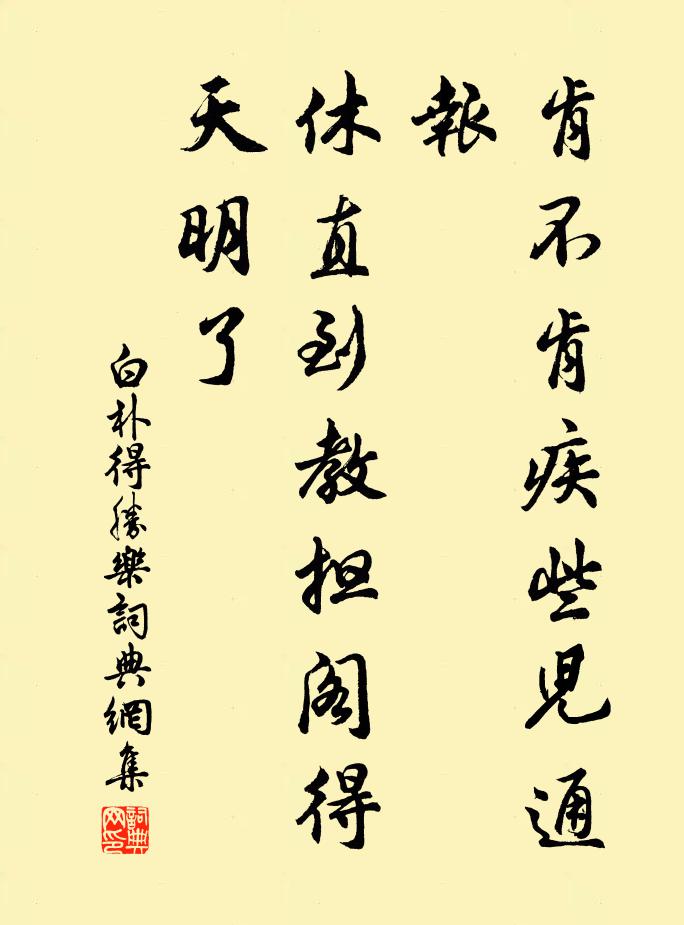 肯不肯疾些兒通
報
休直到教担阁得
天明了
白朴得勝樂詞典網集
詞典网印